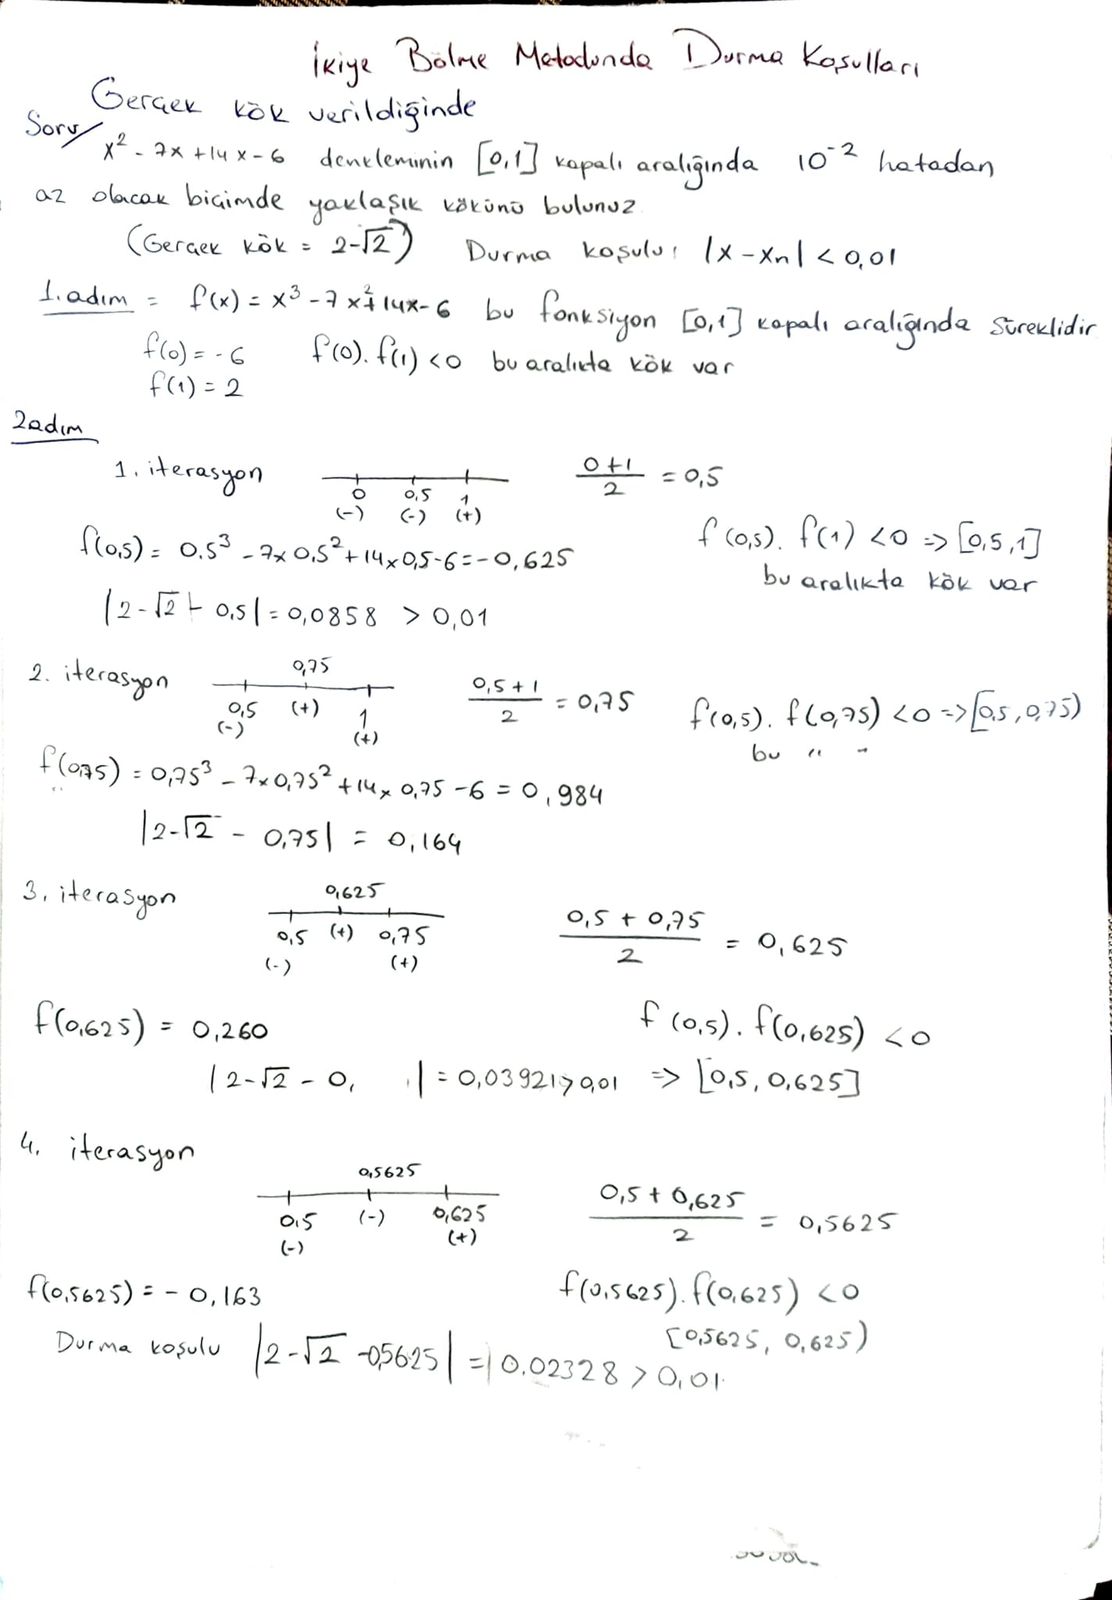 İkiye Bölme Metodunda Durma Koşulları
Gerçek kök verildiğinde
Soru/ x² - 7x + 14x - 6 denkleminin [0,1] kapalı aralığında 10⁻² hatadan
az olacak biçimde yaklaşık kökünü bulunuz.
(Gerçek kök = 2-√2) Durma koşulu: |x - xn| < 0,01
1. adım = f(x) = x³ - 7x² + 14x - 6 bu fonksiyon [0,1] kapalı aralığında süreklidir.
f(0) = -6 f(0). f(1) < 0 bu aralıkta kök var
f(1) = 2
2adım
1. iterasyon 0 0,5 1 (-) (-) (+) (0+1)/2 = 0,5
f(0,5) = 0.5³ - 7x0,5² + 14x0,5-6 = -0,625 f(0,5). f(1) < 0 => [0,5,1]
bu aralıkta kök var
|2-√2 - 0,5| = 0,0858 > 0,01
2. iterasyon 0,75 0,5 (+) 1 (-) (+) (0,5+1)/2 = 0,75 f(0,5). f(0,75) < 0 => [0,5, 0,75)
bu " "
f(0,75) = 0,75³ - 7x0,75² + 14x0,75 - 6 = 0,984
|2-√2 - 0,75| = 0,164
3. iterasyon 0,625 0,5 (+) 0,75 (-) (+) (0,5 + 0,75)/2 = 0,625
f(0,625) = 0,260 f(0,5). f(0,625) < 0
|2-√2 - 0, | = 0,0392 > 0,01 => [0,5, 0,625]
4. iterasyon
0,5625 0,5 (-) 0,625 (-) (+) (0,5 + 0,625)/2 = 0,5625
f(0,5625) = - 0,163 f(0,5625). f(0,625) < 0
[0,5625, 0,625)
Durma koşulu |2-√2 -0,5625| = 0.02328 > 0,01